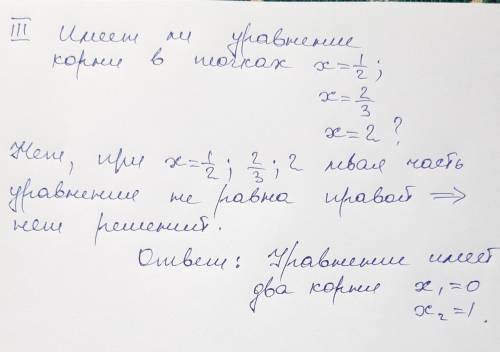 III Имеет ли уравнение
корни в точках x = 1/2;
x = 2/3
x = 2 ?
Нет, при x = 1/2; 2/3; 2 левая часть
уравнения не равна правой ⇒
нет решений.
Ответ: Уравнение имеет
два корня x₁ = 0
x₂ = 1.